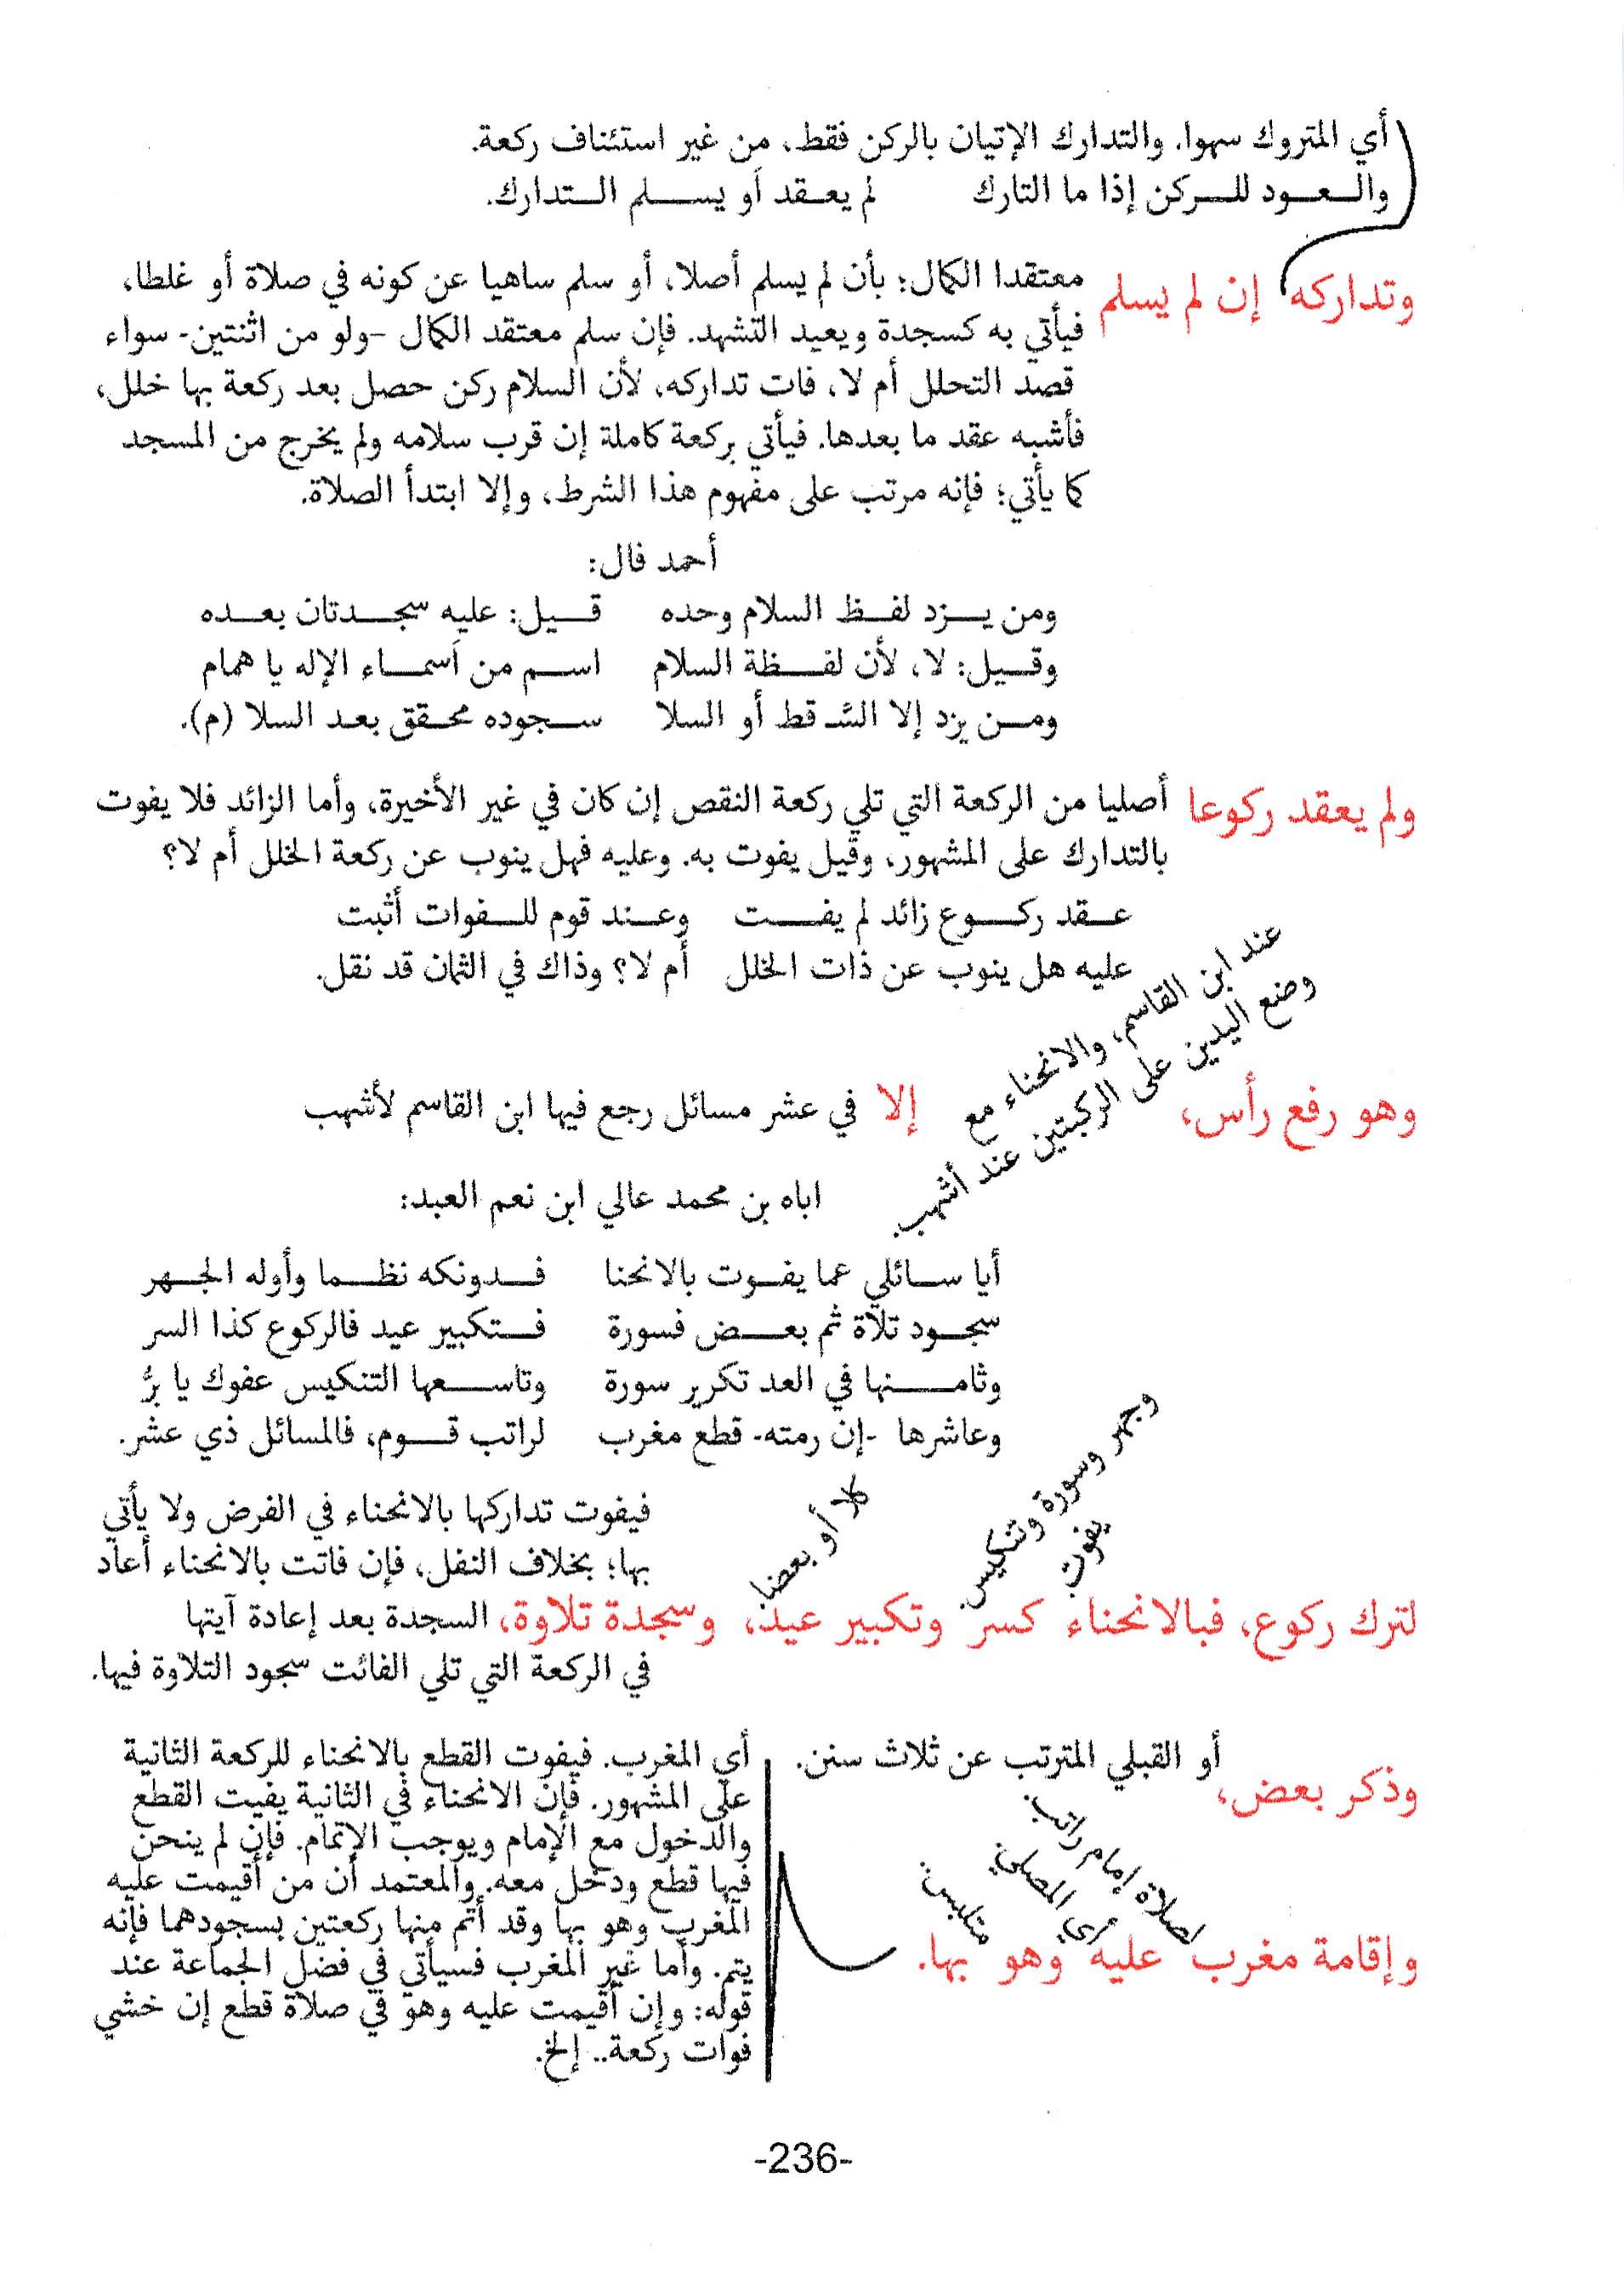 أي المتروك سهوا. والتدارك الإتيان بالركن فقط، من غير استئناف ركعة.
والعود للركن إذا ما التارك لم يعقد أو يسلم التدارك.
وتداركه إن لم يسلم
معتقدا الكمال؛ بأن لم يسلم أصلا، أو سلم ساهيا عن كونه في صلاة أو غلطا،
فيأتي به كسجدة ويعيد التشهد. فإن سلم معتقد الكمال -ولو من اثنتين- سواء
قصد التحلل أم لا، فات تداركه، لأن السلام ركن حصل بعد ركعة بها خلل،
فأشبه عقد ما بعدها. فيأتي بركعة كاملة إن قرب سلامه ولم يخرج من المسجد
كما يأتي؛ فإنه مرتب على مفهوم هذا الشرط، وإلا ابتدأ الصلاة.
أحمد فال:
ومن يزد لفظ السلام وحده قيل: عليه سجدتان بعده
وقيل: لا، لأن لفظة السلام اسم من أسماء الإله يا همام
ومن يزد إلا الشقط أو السلا سجوده محقق بعد السلا (م).
ولم يعقد ركوعا
أصليا من الركعة التي تلي ركعة النقص إن كان في غير الأخيرة، وأما الزائد فلا يفوت
بالتدارك على المشهور، وقيل يفوت به. وعليه فهل ينوب عن ركعة الخلل أم لا؟
عقد ركوع زائد لم يفت وعند قوم للفوات أثبت
عليه هل ينوب عن ذات الخلل أم لا؟ وذاك في الثمان قد نقل.
وهو رفع رأس،
عند ابن القاسم، والانحناء مع
وضع اليدين على الركبتين عند أشهب.
إلا في عشر مسائل رجع فيها ابن القاسم لأشهب
اباه بن محمد عالي ابن نعم العبد:
أيا سائلي عما يفوت بالانحنا فدونكه نظما وأوله الجهر
سجود تلاة ثم بعض فسورة فتكبير عيد فالركوع كذا السر
وثامنها في العد تكرير سورة وتاسعها التنكيس عفوك يا برُّ
وعاشرها -إن رمته- قطع مغرب لراتب قوم، فالمسائل ذي عشر.
لترك ركوع، فبالانحناء كسر وتكبير عيد، وسجدة تلاوة،
يفوت
وجهر وسورة وتنكيس.
كلا أو بعضا
فيفوت تداركها بالانحناء في الفرض ولا يأتي
بها؛ بخلاف النفل، فإن فاتت بالانحناء أعاد
السجدة بعد إعادة آيتها
في الركعة التي تلي الفائت سجود التلاوة فيها.
وذكر بعض،
أو القبلي المترتب عن ثلاث سنن.
وإقامة مغرب عليه وهو بها.
لصلاة إمام راتب.
أي المصلي
متلبس.
أي المغرب. فيفوت القطع بالانحناء للركعة الثانية
على المشهور. فإن الانحناء في الثانية يفيت القطع
والدخول مع الإمام ويوجب الإتمام. فإن لم ينحن
فيها قطع ودخل معه. والمعتمد أن من أقيمت عليه
المغرب وهو بها وقد أتم منها ركعتين بسجودهما فإنه
يتم. وأما غير المغرب فسيأتي في فضل الجماعة عند
قوله: وإن أقيمت عليه وهو في صلاة قطع إن خشي
فوات ركعة.. إلخ.
-236-